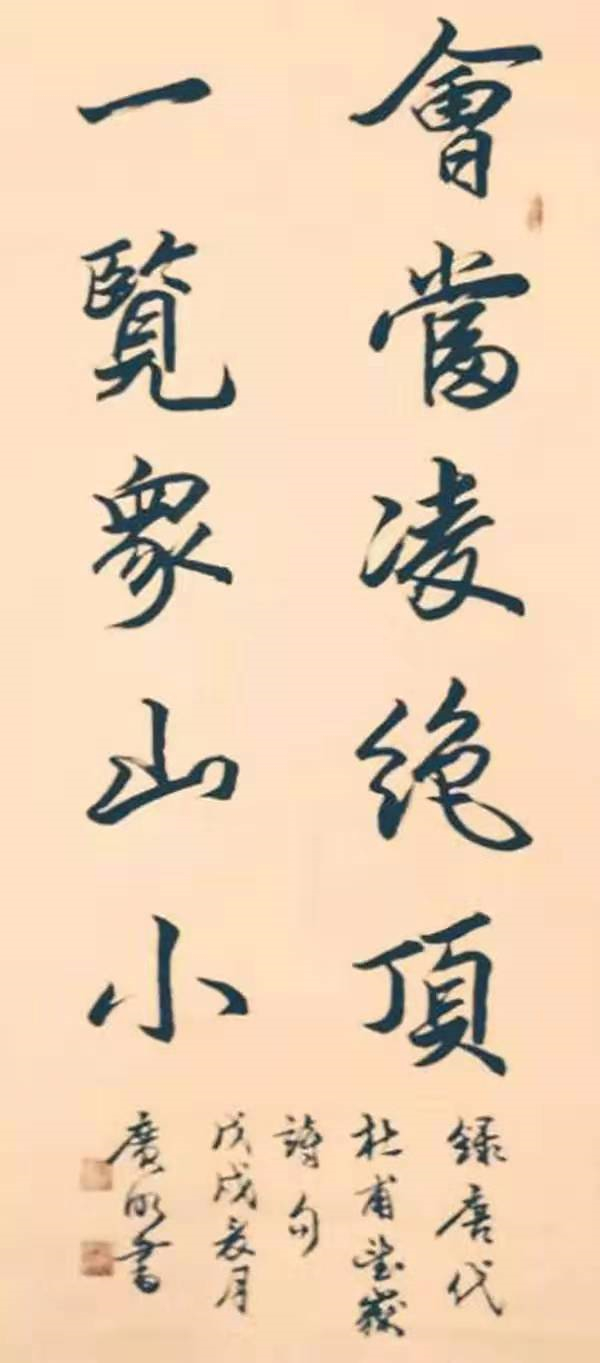 會當凌絕頂
一覽衆山小
錄唐代
杜甫望嶽
詩句
戊戌夏月
廣明書